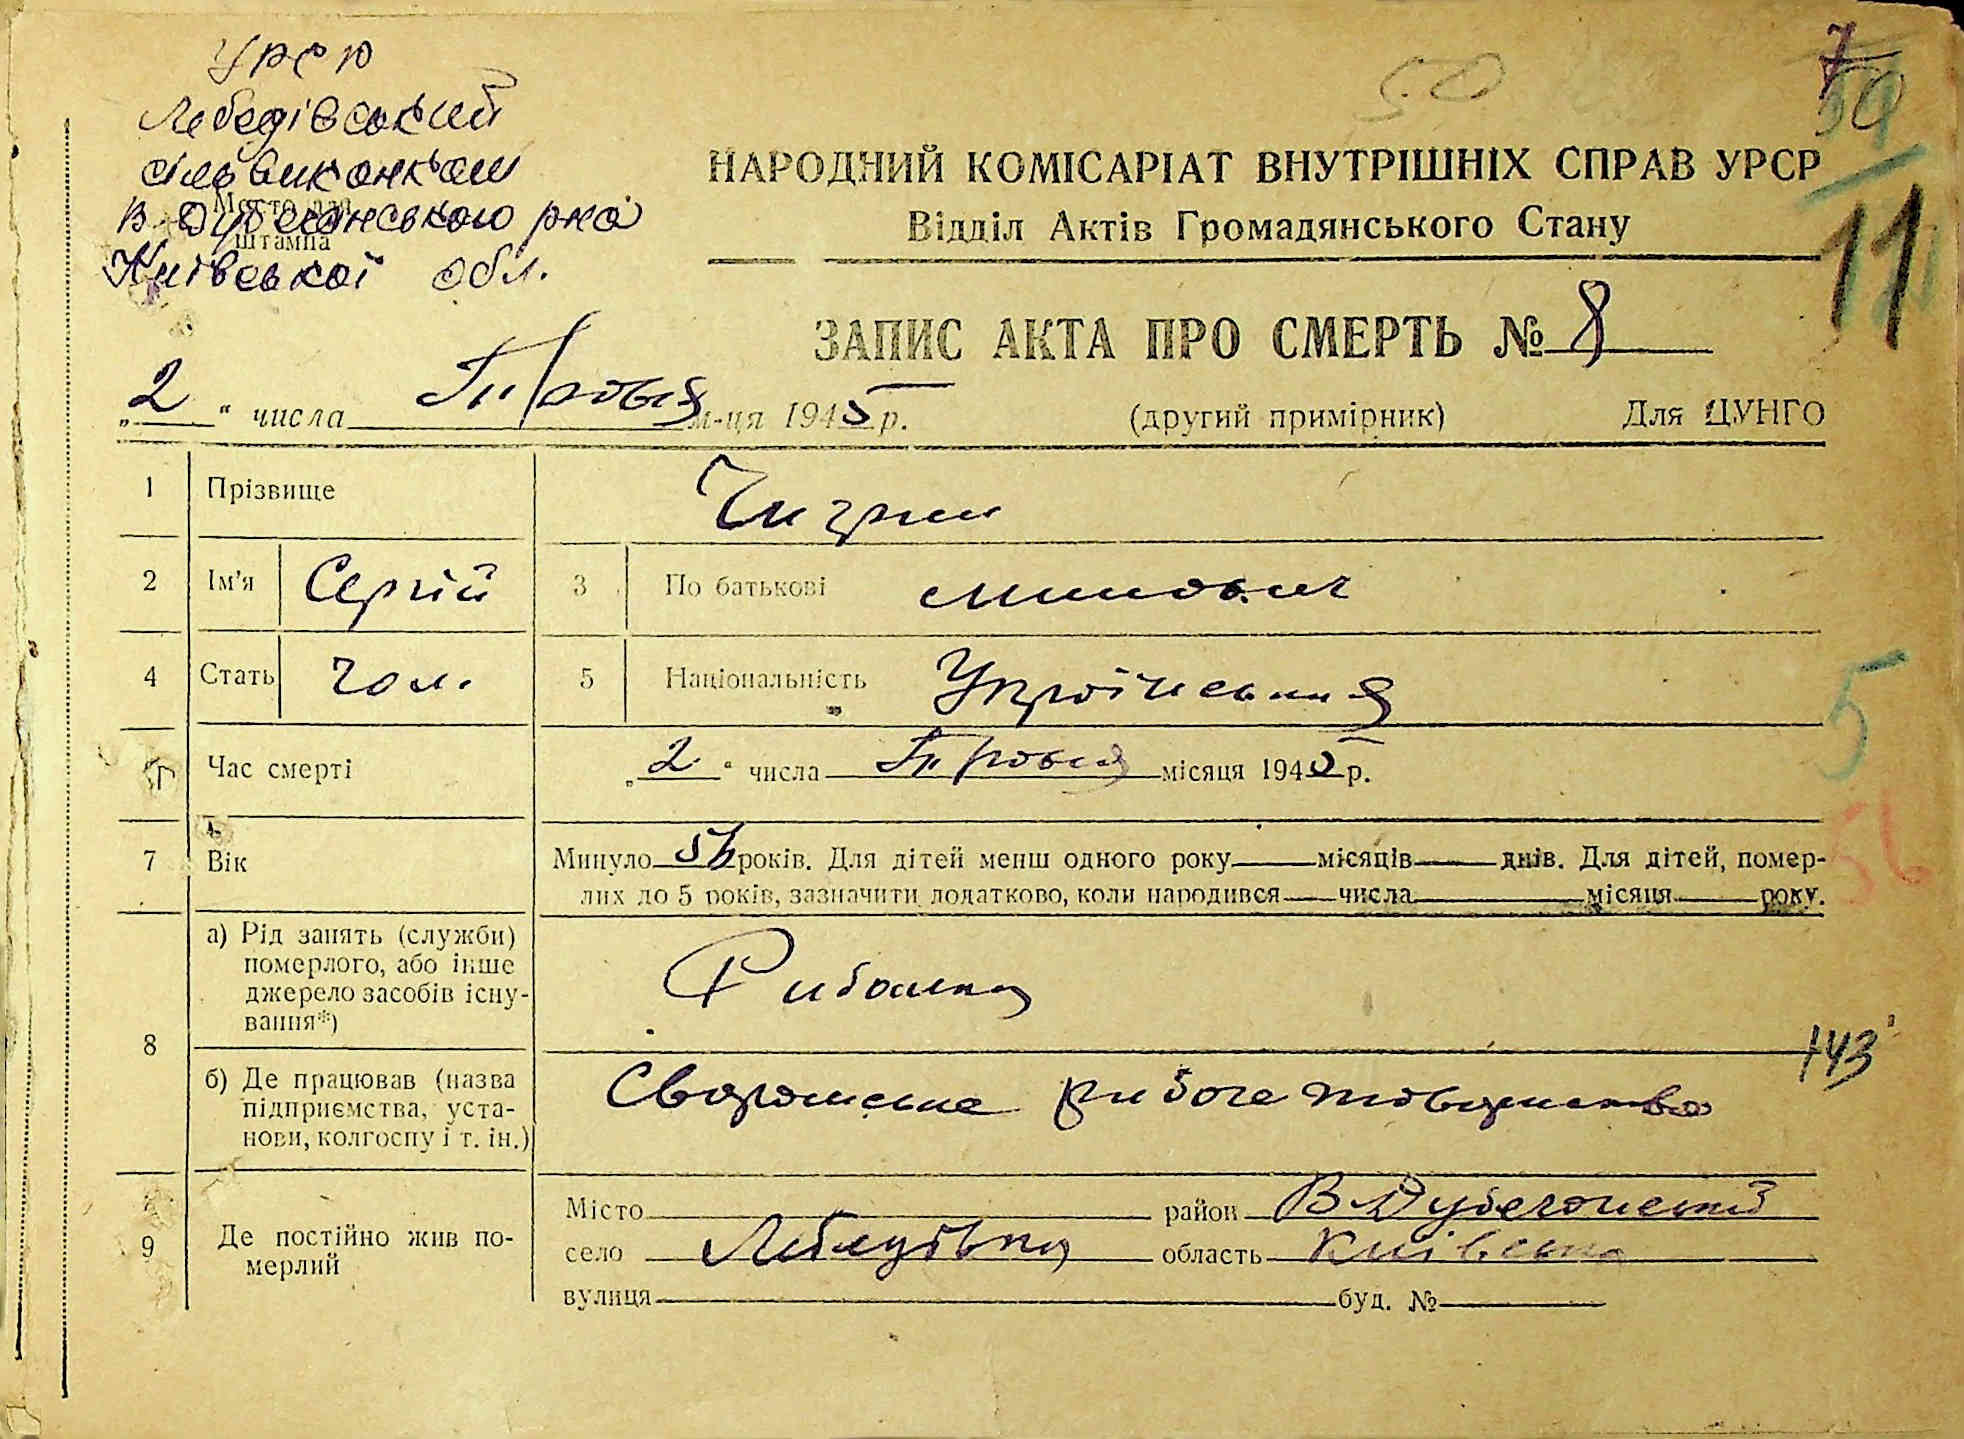 УРСР
Лебедівський
сільвиконком
Місто для
В Дубечанського рна
штампа
Київської обл.
50
7
50
11
НАРОДНИЙ КОМІСАРІАТ ВНУТРІШНІХ СПРАВ УРСР
Відділ Актів Громадянського Стану
ЗАПИС АКТА ПРО СМЕРТЬ № 8
„2“ числа Травня м-ця 1945 р. (другий примірник) Для ЦУНГО
1 Прізвище Чигрин
2 Ім'я Сергій 3 По батькові
4 Стать чол. 5 Національність Українська
5
Час смерті „2“ числа Травня місяця 1945 р.
7 Вік Минуло 56 років. Для дітей менш одного року місяців днів. Для дітей, помер-
лих до 5 років, зазначити додатково, коли народився числа місяця року.
56
8 а) Рід занять (служби)
померлого, або інше
джерело засобів існу-
вання*)
Рибалка
143
б) Де працював (назва
підприємства, уста-
нови, колгоспу і т. ін.)
рибоче товариство
9 Де постійно жив по-
мерлий
Місто район В Дубечанський
село Лебедівка область Київська
вулиця буд. №